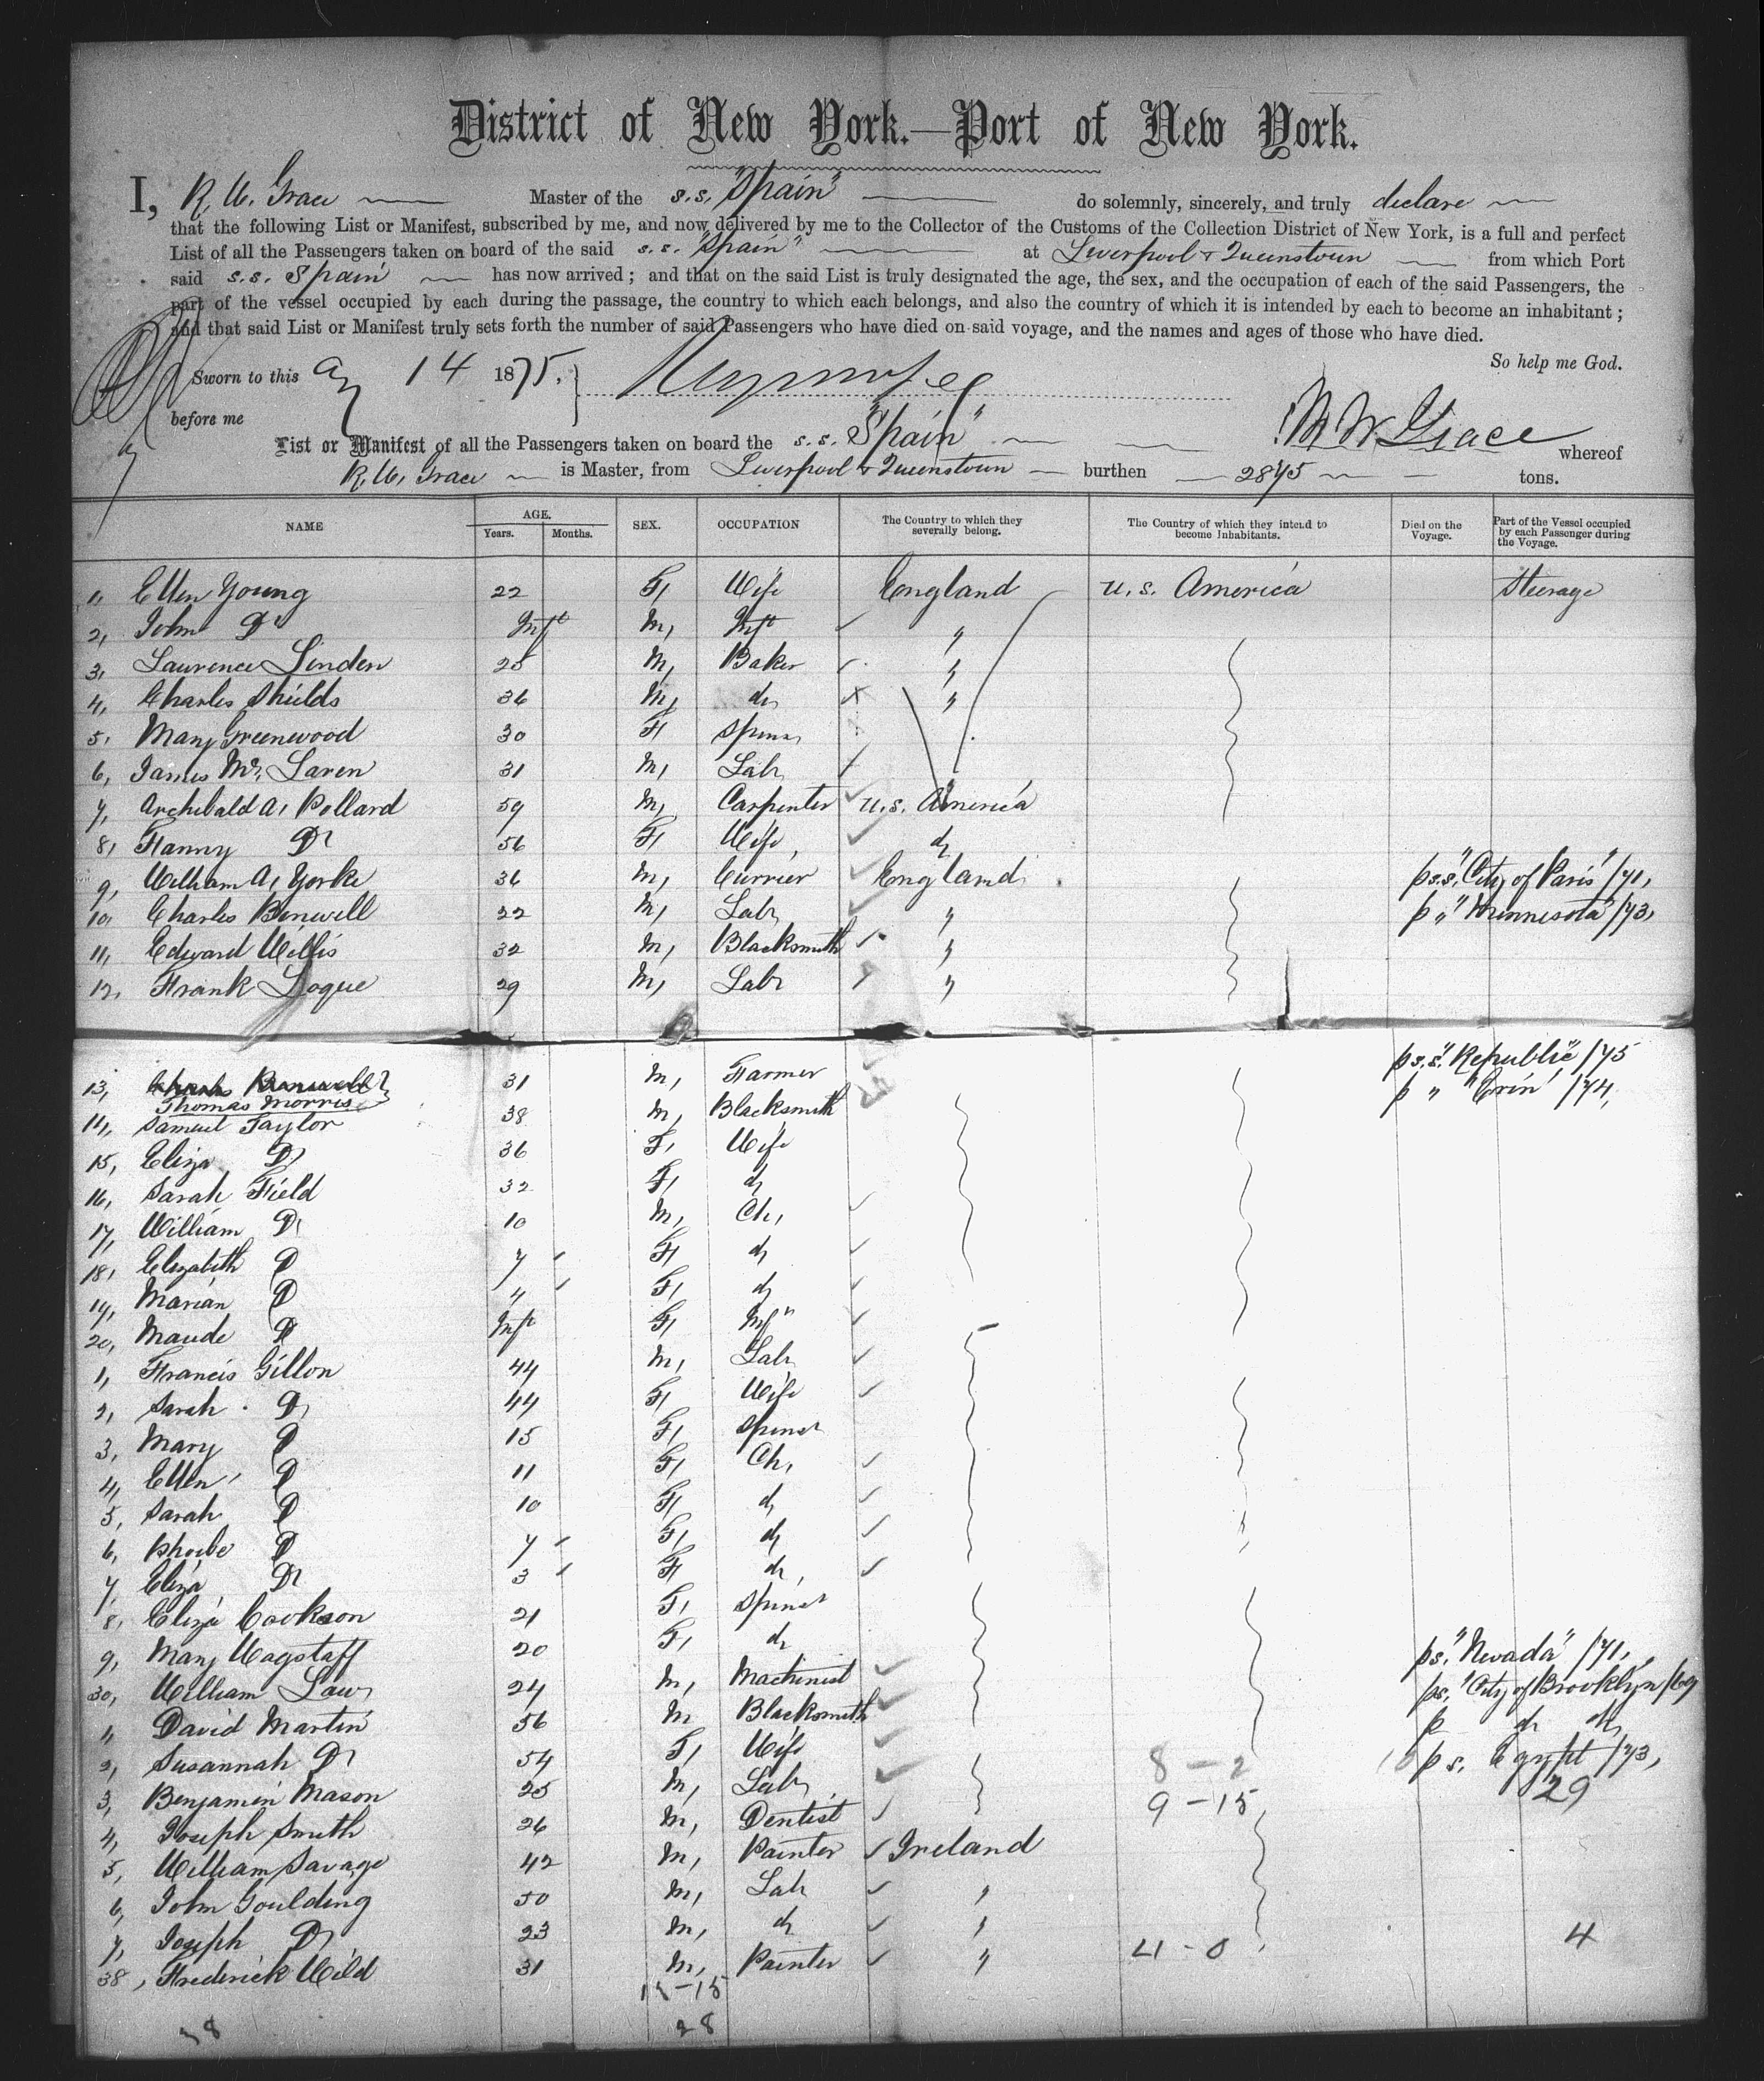 District of New York.—Port of New York.
I, R. W. Grace Master of the s.s. "Spain" do solemnly, sincerely, and truly declare
that the following List or Manifest, subscribed by me, and now delivered by me to the Collector of the Customs of the Collection District of New York, is a full and perfect
List of all the Passengers taken on board of the said s.s. "Spain" at Liverpool & Queenstown from which Port
said s.s. Spain has now arrived; and that on the said List is truly designated the age, the sex, and the occupation of each of the said Passengers, the
part of the vessel occupied by each during the passage, the country to which each belongs, and also the country of which it is intended by each to become an inhabitant;
and that said List or Manifest truly sets forth the number of said Passengers who have died on said voyage, and the names and ages of those who have died.
So help me God.
Sworn to this 14 1875.
before me
R W Grace
List or Manifest of all the Passengers taken on board the s.s. "Spain" whereof
R. W. Grace is Master, from Liverpool & Queenstown burthen 2875 tons.
NAME AGE. Years. Months. SEX. OCCUPATION The Country to which they severally belong. The Country of which they intend to become Inhabitants. Died on the Voyage. Part of the Vessel occupied by each Passenger during the Voyage.
1, Ellen Young 22 F, Wife England U.S. America Steerage
2, John Do Inft M, Inft "
3, Laurence Linden 25 M, Baker "
4, Charles Shields 36 M, do "
5, Mary Greenwood 30 F, Spins
6, James Mc Laren 31 M, Labr
7, Archibald A, Pollard 59 M, Carpenter U.S. America
8, Fanny Do 56 F, Wife, do
9, William A, Yorke 36 M, Currier England p s.s. "City of Paris" /71,
10, Charles Benwell 22 M, Labr " p " "Minnesota" /73,
11, Edward Willis 32 M, Blacksmith "
12, Frank Logue 29 M, Labr "
13, Thomas Morris 31 M, Farmer p s.s. "Republic" /75
14, Samuel Taylor 38 M, Blacksmith p " "Erin" /74,
15, Eliza Do 36 F, Wife
16, Sarah Field 32 F, do
17, William Do 10 M, Ch,
18, Elizabeth Do 7 F, do
19, Marian Do " F, do
20, Maude Do Inft F, Inft
1, Francis Gillon 44 M, Labr
2, Sarah Do 44 F, Wife
3, Mary Do 15 F, Spinst
4, Ellen Do 11 F, Ch,
5, Sarah Do 10 F, do
6, Phoebe Do 7 F, do
7, Eliza Do 3 F, do,
8, Eliza Cookson 21 F, Spinst
9, Mary Wagstaff 20 F, do
30, William Law 24 M, Machinist p s. "Nevada" /71,
1, David Martin 56 M Blacksmith p s. "City of Brooklyn /69
2, Susannah Do 54 F, Wife p do do
3, Benjamin Mason 25 M, Labr 8 - 2 p s. Egypt /73,
4, Joseph Smith 26 M, Dentist 9 - 15 29
5, William Savage 42 M, Painter Ireland
6, John Goulding 50 M, Labr "
7, Joseph Do 23 M, do "
38, Frederick Wild 31 M, Painter " 4 - 0 4
28